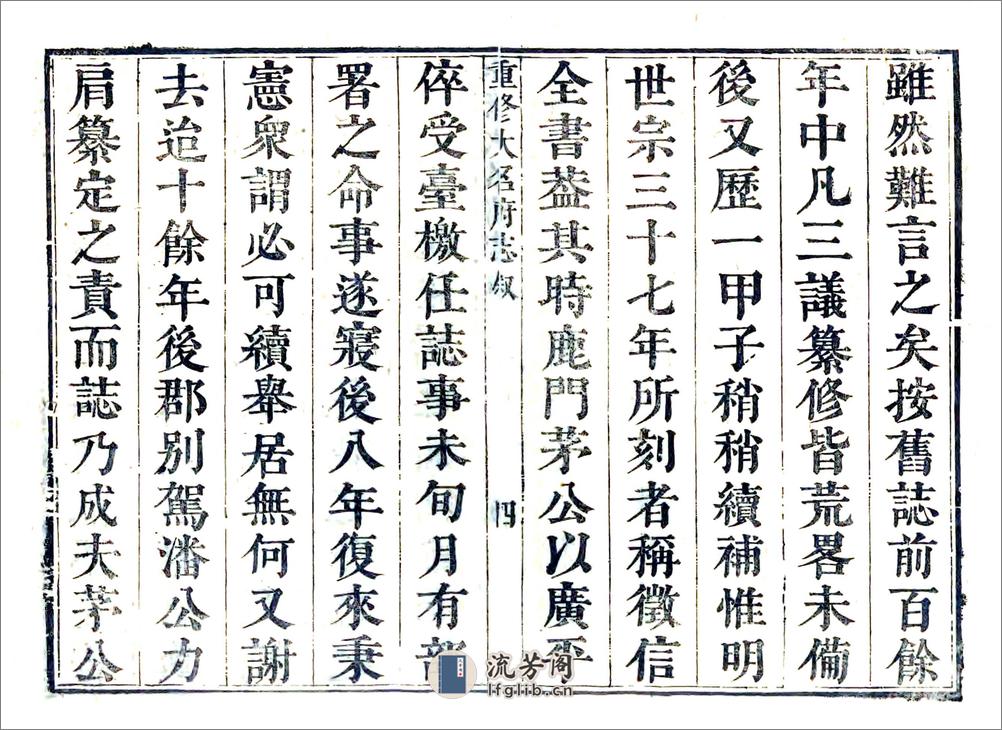 雖然難言之矣按舊誌前百餘
年中凡三議纂修皆荒畧未備
後又歷一甲子稍稍續補惟明
世宗三十七年所刻者稱徵信
全書葢其時鹿門茅公以廣平
重修大名府志叙
四
倅受臺檄任誌事未旬月有部
署之命事遂寢後八年復來秉
憲衆謂必可續舉居無何又謝
去迨十餘年後郡别駕潘公力
肩纂定之責而誌乃成夫茅公
流芳阁
lfglib.cn